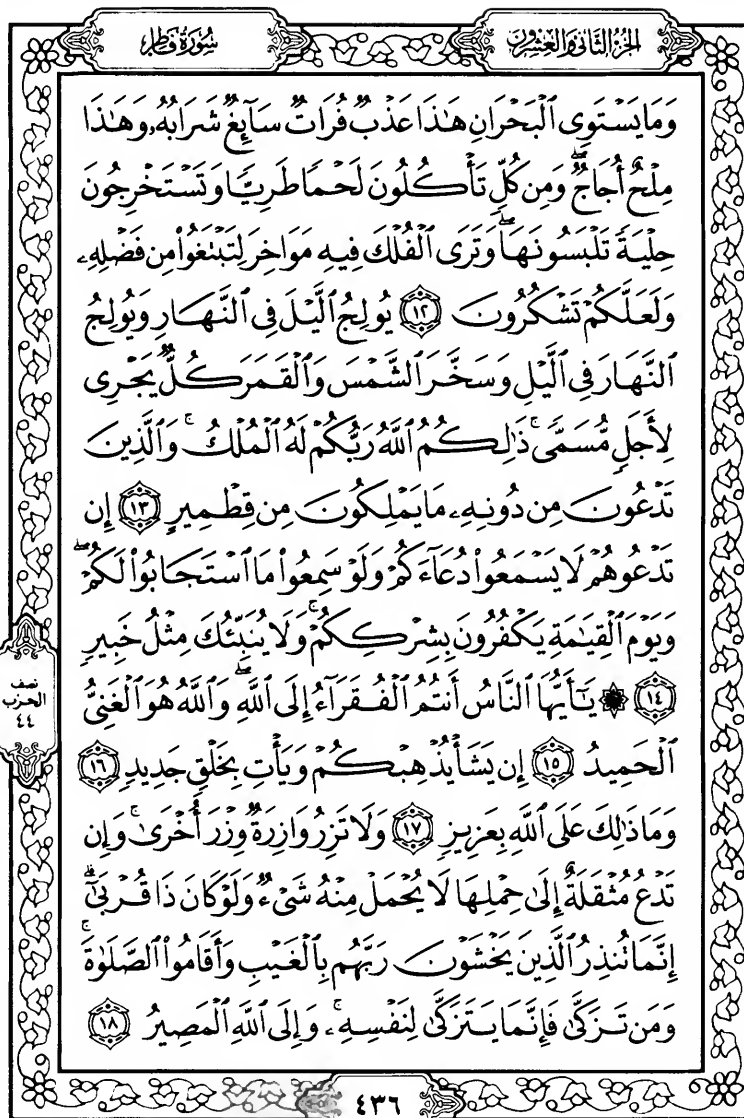 الجزء الثاني والعشرون
سورة فاطر
وَمَا يَسْتَوِى ٱلْبَحْرَانِ هَٰذَا عَذْبٌ فُرَاتٌ سَآئِغٌ شَرَابُهُۥ وَهَٰذَا
مِلْحٌ أُجَاجٌ ۖ وَمِن كُلٍّ تَأْكُلُونَ لَحْمًا طَرِيًّا وَتَسْتَخْرِجُونَ
حِلْيَةً تَلْبَسُونَهَا ۖ وَتَرَى ٱلْفُلْكَ فِيهِ مَوَاخِرَ لِتَبْتَغُوا۟ مِن فَضْلِهِۦ
وَلَعَلَّكُمْ تَشْكُرُونَ ١٢ يُولِجُ ٱلَّيْلَ فِى ٱلنَّهَارِ وَيُولِجُ
ٱلنَّهَارَ فِى ٱلَّيْلِ وَسَخَّرَ ٱلشَّمْسَ وَٱلْقَمَرَ كُلٌّ يَجْرِى
لِأَجَلٍ مُّسَمًّى ۚ ذَٰلِكُمُ ٱللَّهُ رَبُّكُمْ لَهُ ٱلْمُلْكُ ۚ وَٱلَّذِينَ
تَدْعُونَ مِن دُونِهِۦ مَا يَمْلِكُونَ مِن قِطْمِيرٍ ١٣ إِن
تَدْعُوهُمْ لَا يَسْمَعُوا۟ دُعَآءَكُمْ وَلَوْ سَمِعُوا۟ مَا ٱسْتَجَابُوا۟ لَكُمْ ۖ
وَيَوْمَ ٱلْقِيَٰمَةِ يَكْفُرُونَ بِشِرْكِكُمْ ۚ وَلَا يُنَبِّئُكَ مِثْلُ خَبِيرٍ
١٤ ۞ يَٰٓأَيُّهَا ٱلنَّاسُ أَنتُمُ ٱلْفُقَرَآءُ إِلَى ٱللَّهِ ۖ وَٱللَّهُ هُوَ ٱلْغَنِىُّ
ٱلْحَمِيدُ ١٥ إِن يَشَأْ يُذْهِبْكُمْ وَيَأْتِ بِخَلْقٍ جَدِيدٍ ١٦
وَمَا ذَٰلِكَ عَلَى ٱللَّهِ بِعَزِيزٍ ١٧ وَلَا تَزِرُ وَازِرَةٌ وِزْرَ أُخْرَىٰ ۚ وَإِن
تَدْعُ مُثْقَلَةٌ إِلَىٰ حِمْلِهَا لَا يُحْمَلْ مِنْهُ شَىْءٌ وَلَوْ كَانَ ذَا قُرْبَىٰٓ ۗ
إِنَّمَا تُنذِرُ ٱلَّذِينَ يَخْشَوْنَ رَبَّهُم بِٱلْغَيْبِ وَأَقَامُوا۟ ٱلصَّلَوٰةَ ۚ
وَمَن تَزَكَّىٰ فَإِنَّمَا يَتَزَكَّىٰ لِنَفْسِهِۦ ۚ وَإِلَى ٱللَّهِ ٱلْمَصِيرُ ١٨
نصف
الحزب
٤٤
٤٣٦